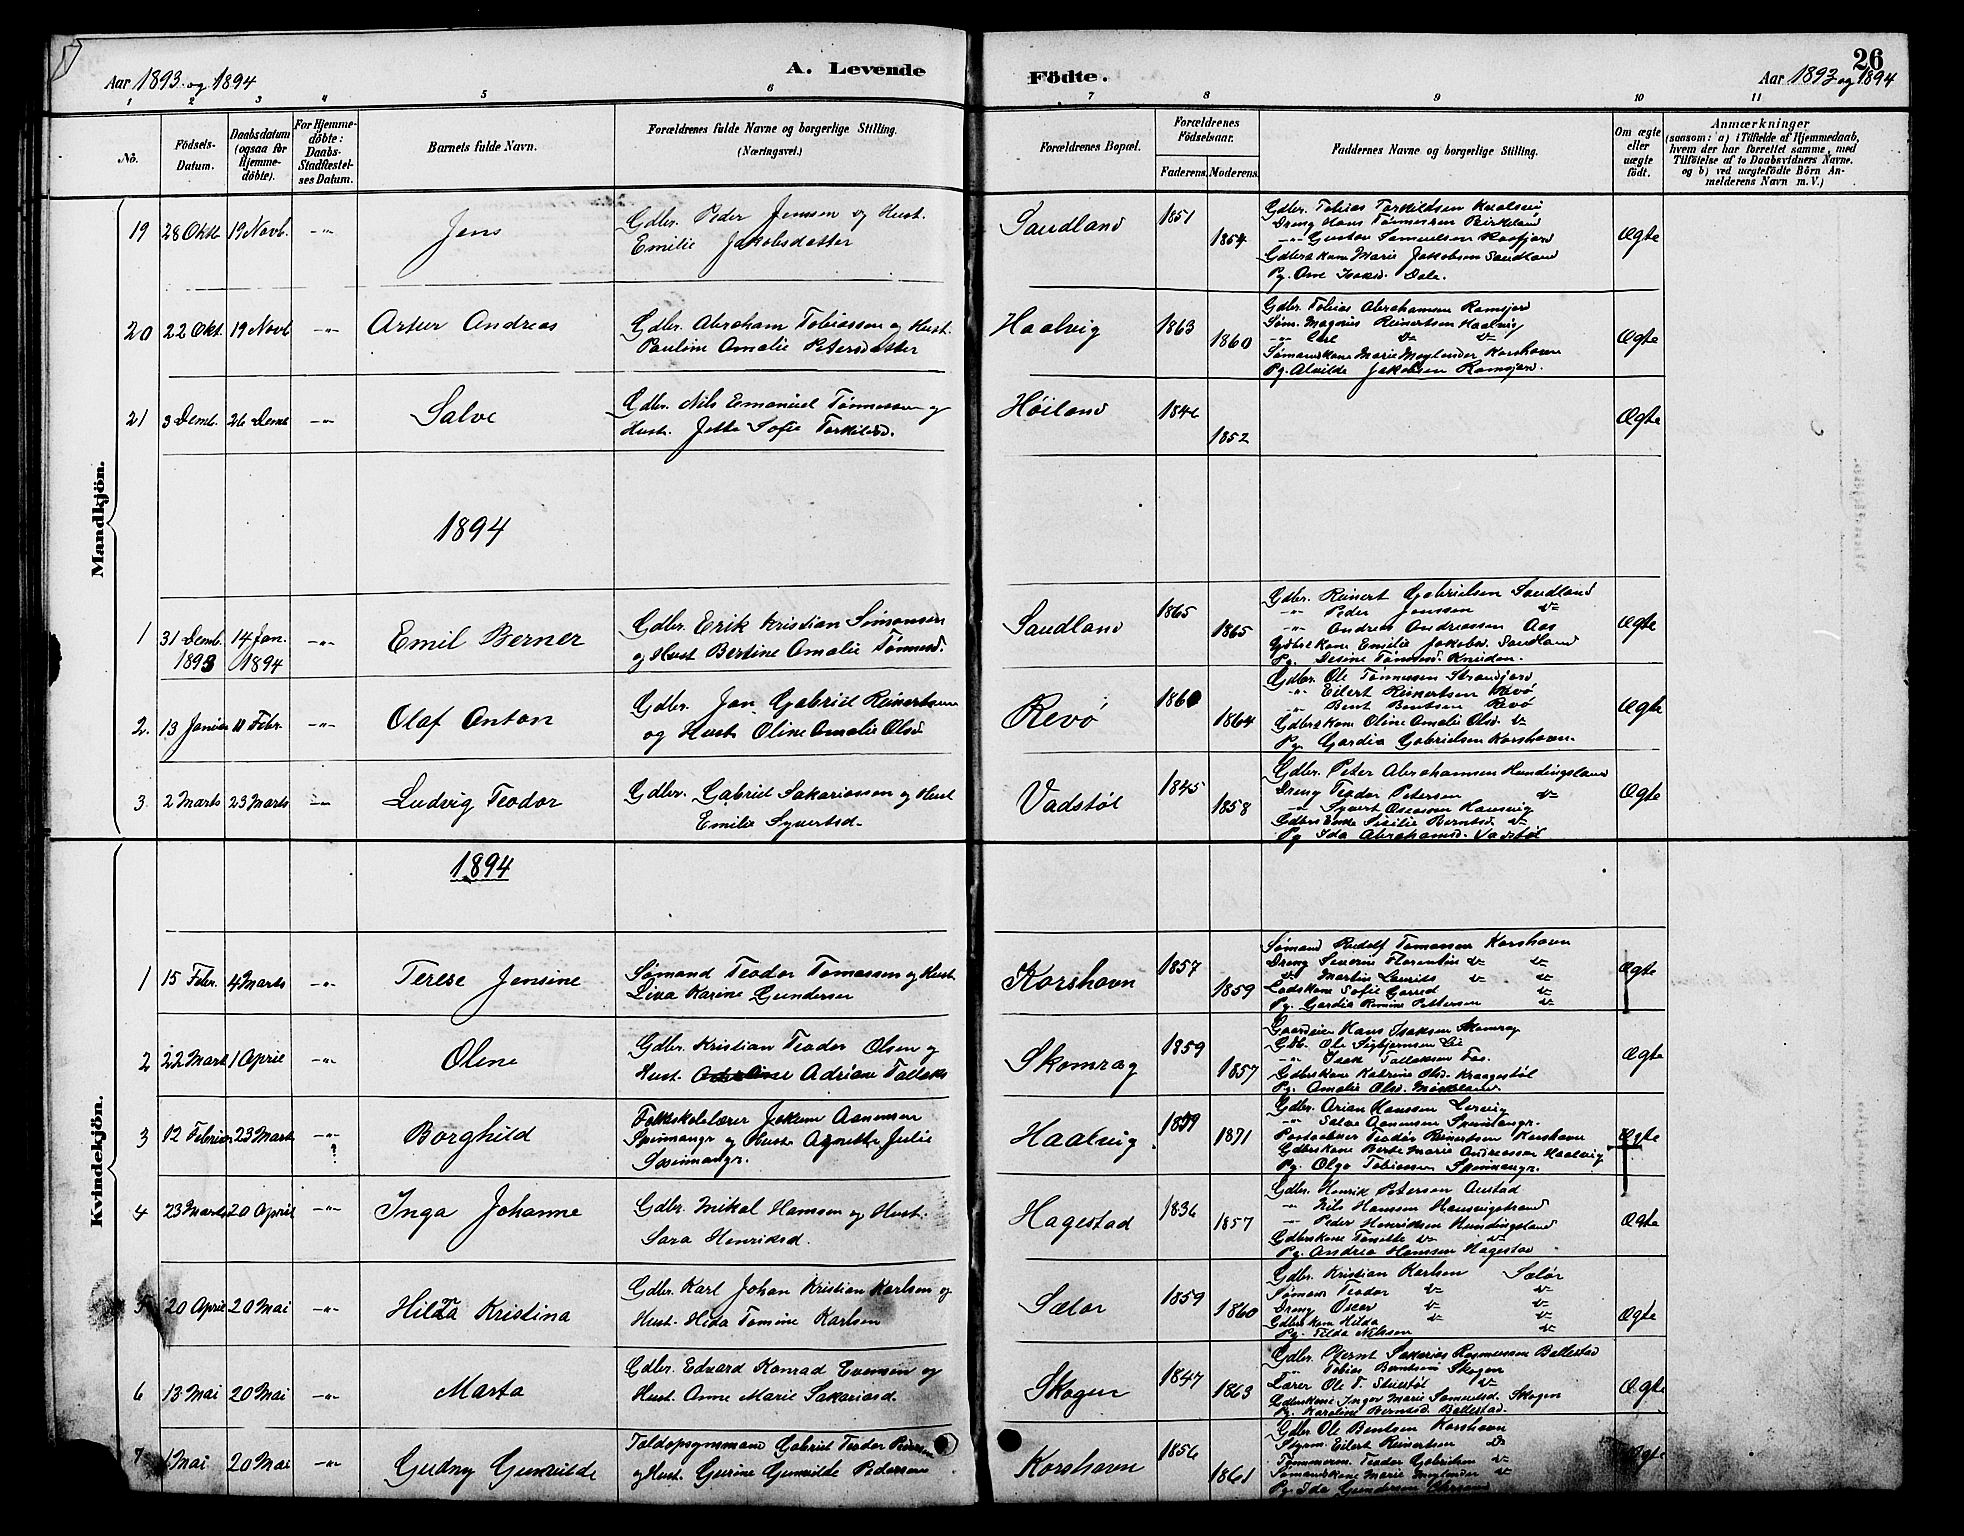 26
Aar 1893 og 1894
A. Levende
Födte.
Aar 1893 og 1894
1 2 3 4 5 6 7 8 9 10 11
No.
Födsels-Datum.
Daabsdatum (ogsaa for Hjemme-döbte).
For Hjemme-döbte: Daabs-Stadfæstel-ses Datum.
Barnets fulde Navn.
Forældrenes fulde Navne og borgerlige Stilling. (Næringsvei.)
Forældrenes Bopæl.
Forældrenes Födselsaar.
Faderens. Moderens.
Faddernes Navne og borgerlige Stilling.
Om ægte eller uægte födt.
Anmærkninger
(saasom: a) i Tilfælde af Hjemmedaab,
hvem der har forrettet samme, med
Tilföielse af to Daabsvidners Navne.
og b) ved uægtefödte Börn An-
melderens Navn m. V.)
Mandkjön.
19 28 Oktb. 19 Novb. -"- Jens
Gdbr. Peder Jensen og Hust.
Emilie Jakobsdatter
Sandland 1851 1854
Gdbr. Tobias Torkildsen
Dreng Hans Tønnessen Birkeland
-"- Gustav Samuelsen
Gdbrskone Marie Jakobsen Sandland
Pg. Ane Isaksd. Dale.
Ægte
20 22 Okt. 19 Novb -"- Artur Andreas
Gdbr. Abraham Tobiassen og Hust.
Pauline Amalie Petersdatter
Haalvig 1863 1860
Gdbr. Tobias Abrahamsen Ramsjord
Søm. Magnus Reinertsen Haalvig
-"- Carl do do
Sømandskone Marie Moglander Korshavn
Pg. Alvilde Jakobsen Ramsjord.
Ægte
21 3 Demb. 26 Demb -"- Salve
Gdbr. Nils Emanuel Tønnessen og
Hust. Jette Sofie Torkildsd.
Høiland 1846 1852
Ægte
1894
1 31 Demb. 1893 14 Jan. 1894 -"- Emil Berner
Gdbr. Erik Kristian Simonsen
og Hust Bertine Amalie Tønnesd.
Sandland 1865 1865
Gdbr. Reinert Gabrielsen Sandland
-"- Peder Jenssen do
-"- Andreas Andreassen Aas
Gdbrskone Emilie Jakobsd. Sandland
Pg. Desine Tønnesd. Knuden.
Ægte
2. 13 Januar 11 Febr. -"- Olaf Anton
Gdbr. Jon Gabriel Reinertsen
og Hust Oline Amalie Olsd.
Revø 1860 1864
Gdbr. Ole Tønnessen Strandjord
-"- Eilert Reinertsen Revø
-"- Bent Bentsen Revø
Gdbrskone Oline Amalie Olsd. do
Pg. Gardia Gabrielsen Korshavn.
Ægte
3. 2 Marts 23 Marts -"- Ludvig Teodor
Gdbr. Gabriel Sakariassen og Hust
Emilie Syvertsd.
Vadstøl 1845 1858
Gdbr. Peter Abrahamsen Hundingsland
Dreng Teodor Petersen do
-"- Syvert Osearsen Hausvig
Gdbrskone Sesilie Berntsd. do
Pg Ida Abrahamsd. Vadstøl
Ægte
Kvindekjön.
1894
1 15 Febr. 4 Marts -"- Terese Jensine
Sømand Teodor Tomassen og Hust
Lina Karine Gundersen
Korshavn 1857 1859
Sømand Rudolf Tomassen Korshavn
Dreng Severin Florentin do do
do Martin Laurits do do
Lodskone Sofie do
Pg. Gardia Pettersen do
Ægte
2 22 Marts 1 April -"- Olene
Gdbr. Kristian Teodor Olsen og
Hust. Adriane Tallaks
Skomrag 1859 1857
Gaardeier Hans Isaksen Skomrag
Gdb. Ole Sigbjørnsen Lie
-"- Isak Tallaksen Fos.
Gdbrskone Katrine Olsd. Kraagestøl
Pg. Amalie Olsd.
Ægte
3 12 Februar 23 Marts -"- ? Borghild
Folkeskolelærer Jakum Aanensen
Spinnangr og Hust Agnette Julie
Spinnangr.
Haalvig 1859 1871
Gdbr. Arian Hanssen Lervig
-"- Salve Aanensen Spinnangr.
Postaabner Teodor Reinertsen Korshavn
Gdbrskone Berte Marie Andreassen Haalvig
Pg. Olga Tobiassen Spinnangr.
Ægte
4 23 Marts 20 April -"- Inga Johanne
Gdbr. Mikal Hansen og Hust.
Sara Henriksd.
Hagestad 1836 1857
Gdbr. Henrik Petersen Austad
-"- Nils Hansen Hausvigstrand
-"- Peder Henriksen Hundingsland
Gdbrskone Tomette do do
Pg. Andrea Hanssen Hagestad
Ægte
5 20 April 20 Mai -"- Hilda Kristina
Gdbr. Karl Johan Kristian Karlsen og
Hust. Hilda Tomine Karlsen
Sælør 1859 1860
Gdbr. Kristian Karlsen Sælør
Sømand Teodor do do
Dreng Oscar do do
Gdbrskone Hilda do do
Pg. Tilda Nilssen do
Ægte
6 13 Mai 20 Mai -"- Marta
Gdbr. Edvard Konrad Evensen og
Hust. Anne Marie Sakariasd.
Skogen 1847 1863
Gdbr. Bernt Sakarias Rasmussen Ballestad
-"- Tobias Berntsen Skogen
Lærer Ole T. do
Gdbrskone Inger Marie Samuelsd. Skogen
Pg. Karoline Berntsd. Ballestad.
Ægte
7 1 Mai 20 Mai -"- Gudny Gunnilde
Toldopsynsmand Gabriel Teodor Pedersen
og Hust. Gurine Gunnilde Pedersen
Korshavn 1856 1861
Gdbr Ole Bentsen Korshavn
Styrm. Eilert Reinertsen Do
Tømmerm. Teodor Gabrielsen do
Sømandskone Marie Moglander do
Pg Ida Gundersen
Ægte